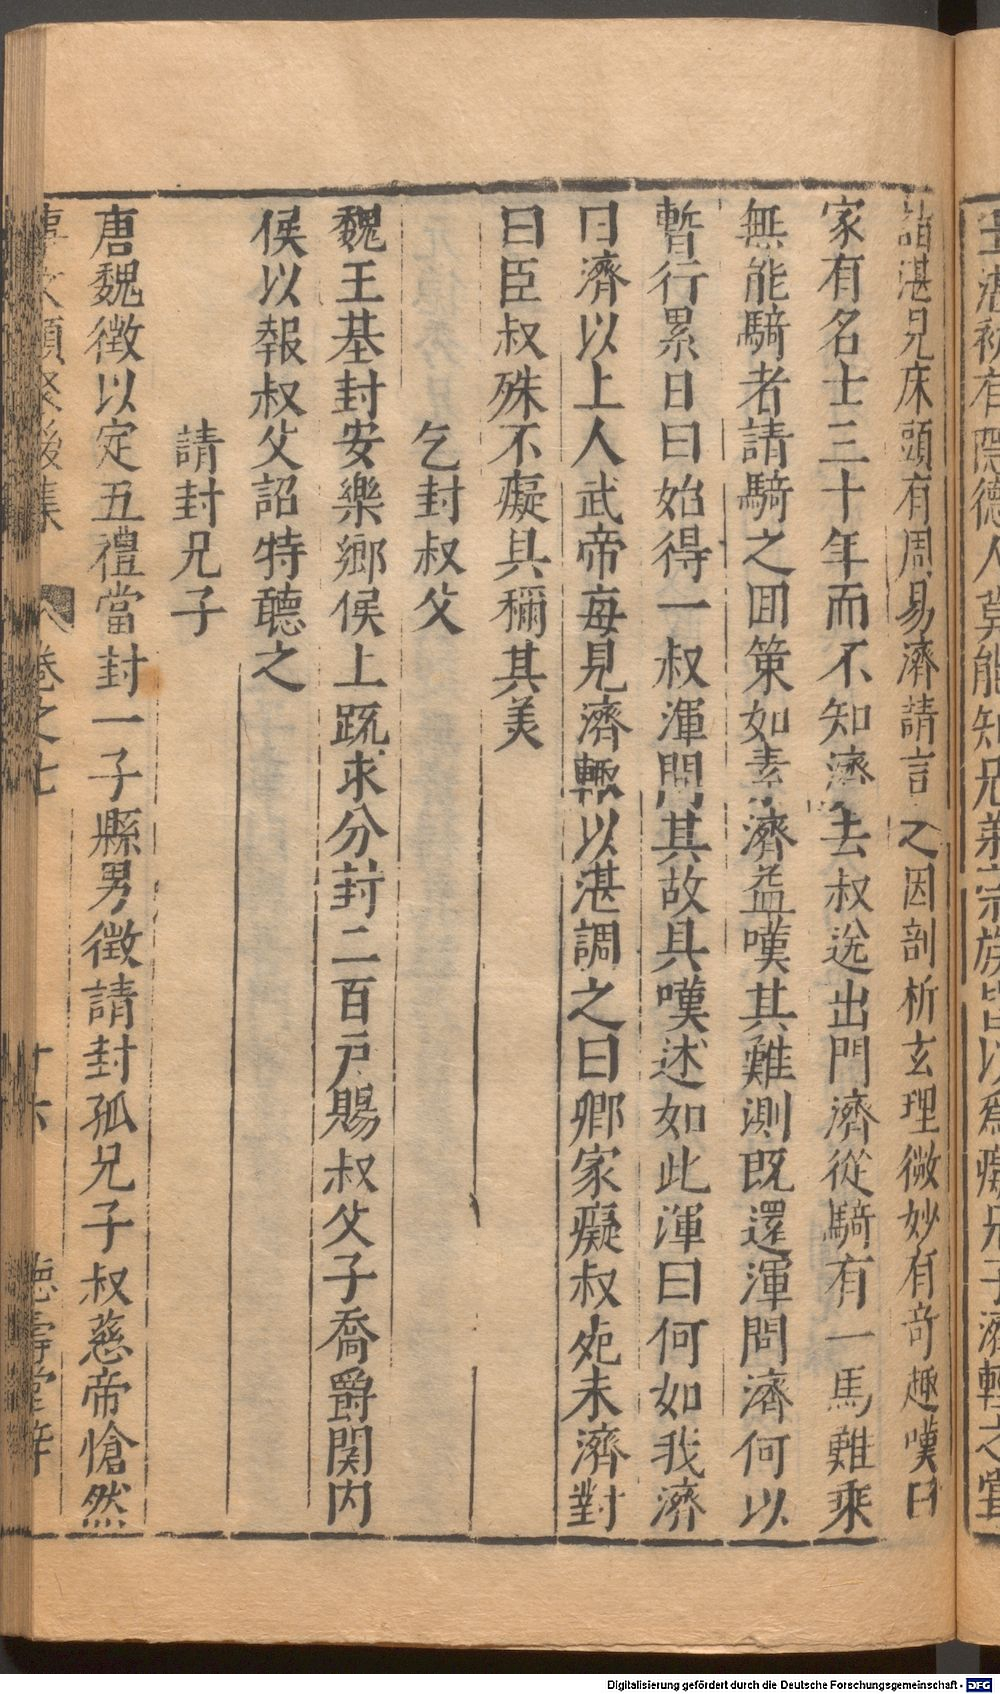 王濟初有隱德人莫能知兄弟宗族皆以爲癡兄子濟輕之嘗
詣湛見床頭有周易濟請言之因剖析玄理微妙有奇趣嘆曰
家有名士三十年而不知濟去叔送出門濟從騎有一馬難乘
無能騎者請騎之囬策如素濟益嘆其難測既還渾問濟何以
暫行累日曰始得一叔渾問其故具嘆述如此渾曰何如我濟
曰濟以上人武帝每見濟輙以湛調之曰卿家癡叔死未濟對
曰臣叔殊不癡具稱其美
乞封叔父
魏王基封安樂鄉侯上疏求分封二百户賜叔父子喬爵関内
侯以報叔父詔特聽之
請封兄子
唐魏徵以定五禮當封一子縣男徵請封孤兄子叔慈帝愴然
事文類聚後集 卷之七 十六 德壽堂梓
Digitalisierung gefördert durch die Deutsche Forschungsgemeinschaft - DFG